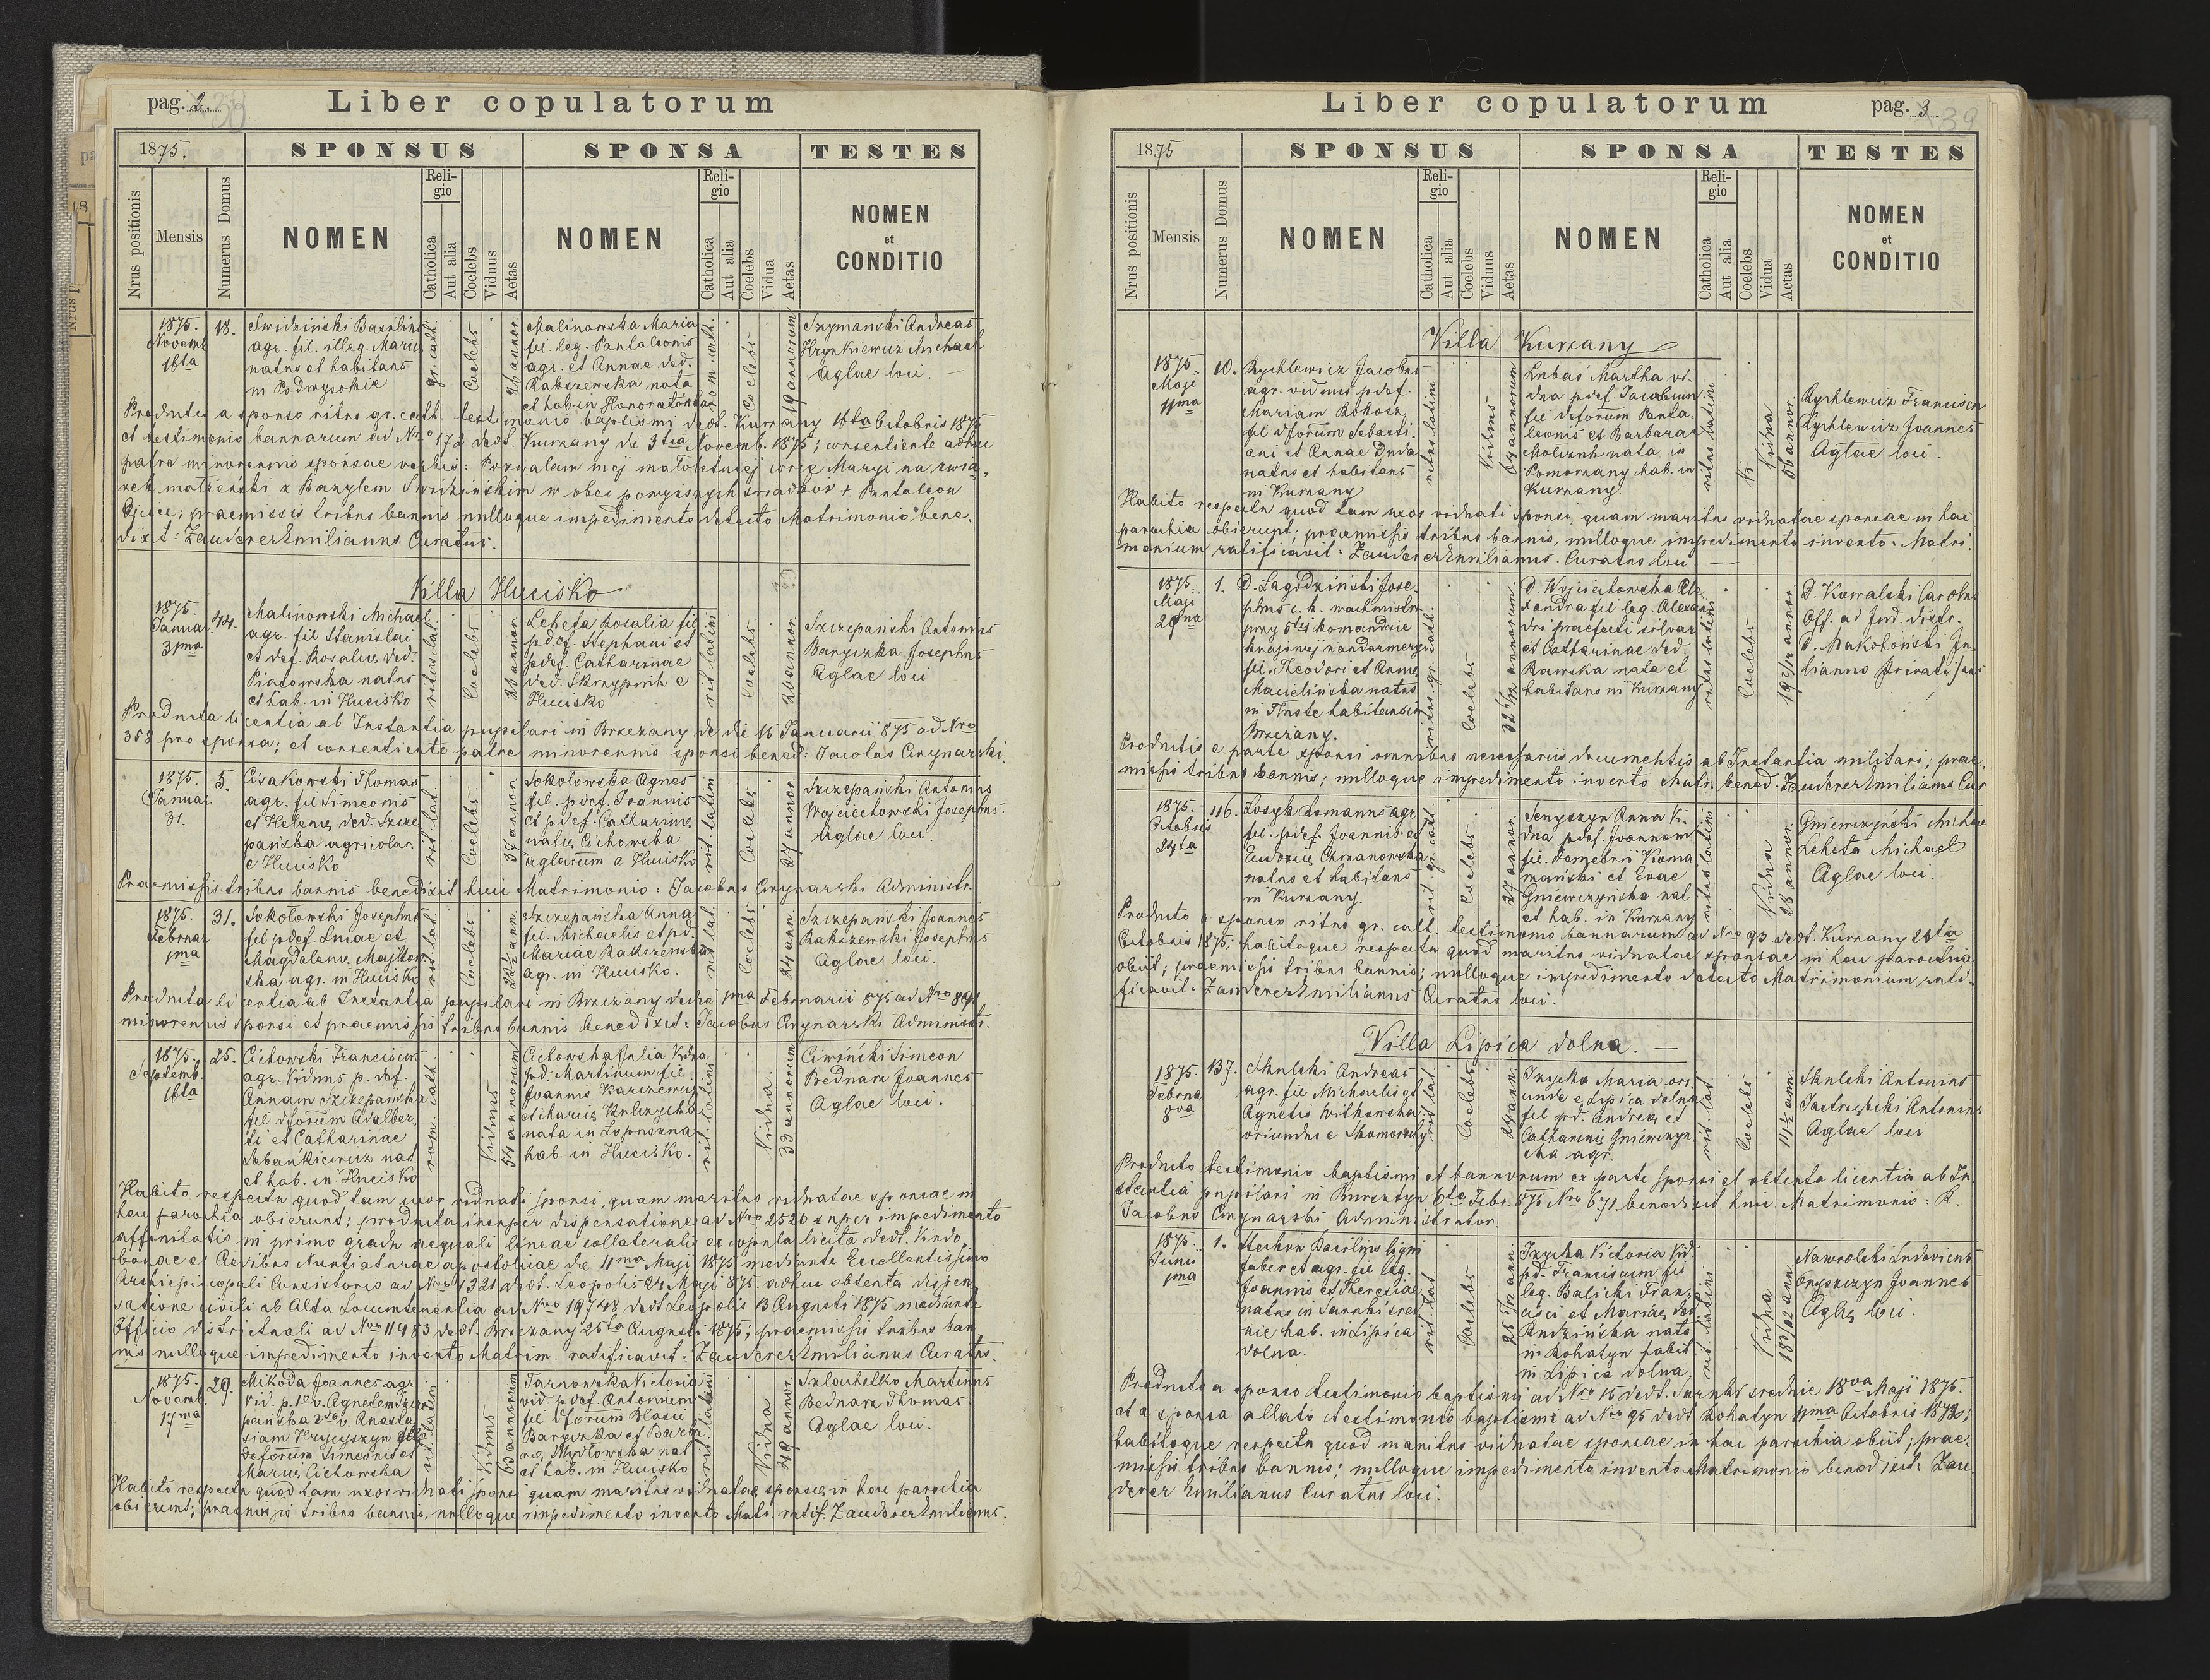 pag. 2.
Liber copulatorum
1875.
SPONSUS
SPONSA
TESTES
Nrus positionis
Mensis
Numerus Domus
NOMEN
Religio
Catholica
Aut alia
Coelebs
Viduus
Aetas
NOMEN
Religio
Catholica
Aut alia
Coelebs
Vidua
Aetas
NOMEN
et
CONDITIO
1875.
Novemb
16ta
18.
Swidziński Basilius
agr. fil. illeg. Mariae
natus et habitans
in Podwysokie
gr. cath.
Coelebs
Malinowska Maria
fil. leg. Pantaleonis
agr. et Annae ded.
Rakszewska nata
et hab. in Honoratówka
rom. cath.
Coelebs
19 annorum
Szymanski Andreas
Hrynkiewicz Michael
Aglae loci.
Producto a sponso ritus gr. cath. testimonio baptismi ddt. Kurzany 16ta Octobris 1875
et testimonio bannorum ad Nro 172 ddt. Kurzany de 3tia Novemb. 1875; consentiente adhuc
patre minorennis sponsae verbis: Pozwalam mej małoletniej córce Maryi na zwią-
zek małżeński z Bazylem Swidzińskim w obec powyższych swiadków + Pantaleon
Ojciec; praemissis tribus bannis nulloque impedimento detecto Matrimonio bene-
dixit: Zauderer Emilianus Curatus.
Villa Hucisko
1875.
Januar.
31ma
44.
Malinowski Michael
agr. fil Stanislai
et def. Rosaliae ded.
Piatowska natus
et hab. in Hucisko
ritus lat.
Coelebs
23 annor
Leheta Rosalia fil
p.def. Stephani et
pdef. Catharinae
ded. Skrzypnik e
Hucisko
rit latini
Coelebs
20 annor
Szczepański Antonius
Baryczka Josephus
Aglae loci
Producta licentia ab Instantia pupilari in Brzezany de die 16 Januarii 875 ad Nro
358 pro sponsa; et consentiente patre minorennis sponsi bened: Jacobus Cynarski.
1875.
Januar.
31.
5.
Cisakowski Thomas
agr. fil Simeonis
et Helenae ded. Szcze
pańska agricolar.
e Hucisko
rit. lat.
Coelebs
Sokołowska Agnes
fil. pdef. Joannis
et pdef. Catharinae
natae Cichowska
aglarum e Hucisko
rit. latini
Coelebs
27 annor
Szczepański Antonius
Wojciechowski Josephus.
Aglae loci.
Praemissis tribus bannis benedixit huic Matrimonio: Jacobus Cynarski Administr.
1875.
Februar
1ma
31.
Sokołowski Josephus
fil pdef. Lucae et
Magdalenae Majkow
ska agr. in Hucisko
rit lat.
Coelebs
22½ ann.
Szczepańska Anna
fil. Michaelis et pd.
Mariae Rakszewska
agr. in Hucisko.
rit lat.
Coelebs
24 ann.
Szczepański Joannes
Rakszewski Josephus
Aglae loci.
Producta licentia ab Instantia pupilari in Brzezany de die 1ma Februarii 875 ad Nro 891
minorennis sponsi et praemissis tribus bannis benedixit: Jacobus Cynarski Administr.
1875.
Septemb.
16ta
25.
Cichowski Franciscus
agr. Viduus p. def.
Annam Szczepańska
fil dforum Adalber-
ti et Catharinae
Sebańkiewicz nat
et hab. in Hucisko
rom. cath.
Viduus
54 annorum
Cichowska Julia Vidua
pd. Martinum fil.
Joannis Karczewicz
et Mariae Kulczycka
nata in Łopuszna
hab. in Hucisko.
rit. latini
Vidua
33 annorum
Ciwiński Simeon
Bednarz Joannes
Aglae loci.
Habito respectu quod tam uxor viduati sponsi, quam maritus viduatae sponsae in
hac parochia obierunt; producta insuper dispensatione ad Nro 2520 super impedimento
affinitatis in primo gradu aequali lineae collateralis ex copula licita ddt. Vindo-
bonae ex Aedibus Nuntiaturae apostolicae die 11ma Maji 1875 mediante Excellentissimo
Archiepiscopali Consistorio ad Nro 1321 ddt. Leopolis 24 Maji 875 adhuc obtenta dispen-
satione civili ab Alta Locumtenentia ad Nro 19748 ddt Leopolis 13 Augusti 1875 mediante
Officio districtuali ad Nro 11983 ddt. Brzezany 25ta Augusti 1875; praemissis tribus ban
nis nulloque impedimento invento Matrim. ratificavit: Zauderer Emilianus Curatus.
1875.
Novemb.
17ma
29.
Mikoda Joannes agr.
Vid. p. 1o v. Agnetem Szcze
pańska 2do v. Anasta
siam Hrycyszyn fil
deforum Simeonis et
Mariae Cichowska
rit. latini
Viduus
63 annorum
Tarnowska Victoria
vid. p. def. Antonium
fil dforum Blasii
Baryczka et Barba
rae Mydłowska nat
et hab. in Hucisko
rit. latini
Vidua
49 annor
Szlachetko Martinus
Bednarz Thomas.
Aglae loci.
Habito respectu quod tam uxor viduati sponsi quam maritus viduatae sponsae in hac parochia
obierunt; praemissis tribus bannis nulloque impedimento invento Matr. ratif. Zauderer Emilianus.
Liber copulatorum
pag. 3
1875
SPONSUS
SPONSA
TESTES
Nrus positionis
Mensis
Numerus Domus
NOMEN
Religio
Catholica
Aut alia
Coelebs
Viduus
Aetas
NOMEN
Religio
Catholica
Aut alia
Coelebs
Vidua
Aetas
NOMEN
et
CONDITIO
Villa Kurzany
1875.
Maji
11ma
10.
Rychlewicz Jacobus
agr. viduus pdef
Mariam Rokosz,
fil dforum Sebasti-
ani et Annae Duda
natus et habitans
in Kurzany
ritus latini
Viduus
Lubas Martha vi-
dua pdef. Jacobum
fil deforum Panta-
leonis et Barbarae
Moliznk nata in
Pomorzany hab. in
Kurzany.
ritus latini
Vidua
50 annor
Rychlewicz Franciscus
Rychlewicz Joannes
Aglae loci.
Habito respectu quod tam uxor viduati sponsi, quam maritus viduatae sponsae in hac
parochia obierunt; praemissis tribus bannis, nulloque impedimento invento Matri-
monium ratificavit: Zauderer Emilianus. Curatus loci.
1875.
Maji
29na
1.
D. Łagodziński Jose-
phus c. k. wachmistrz
przy 5tej komandzie
krajowej żandarmeryi
fil. Theodori et Annae
Macielińska natus
in Tłuste habitans in
Brzezany.
ritus gr. cath.
Coelebs
32 6/12 annorum
D. Wojciechowska Ale-
xandra fil leg. Alexan
dri praefecti silvar
et Catharinae ded.
Rawska nata et
habitans in Kurzany
ritus latini
Coelebs
D. Kowalski Carolus
Off. ad Jud. distr.
D. Makohoński Ju-
lianus
Productis e parte sponsi omnibus necessariis documentis ab Instantia militari; prae-
missis tribus bannis; nulloque impedimento invento Matr. bened. Zauderer Emilianus Cur
1875.
Octobris
24ta
116.
Łosyk Romanus agr
fil. pdef. Joannis et
Eudoxiae Chmanowska
natus et habitans
in Kurzany.
rit gr. cath
Coelebs
27 annor
Senyszyn Anna Vi-
dua pdef. Joannem
fil. Demetrii Koma
rnański et Evae
Gniewczyńska nat
et hab. in Kurzany
ritus latini
Vidua
28 annor
Gniewczyński Michae
Leheta Michael
Aglae loci.
Producto a sponso ritus gr. cath. testimonio bannorum ad Nro 93 ddt. Kurzany 24ta
Octobris 1875; habitoque respectu quod maritus viduatae sponsae in hac parochia
obiit; praemissis tribus bannis; nulloque impedimento detecto Matrimonium rati-
ficavit: Zauderer Emilianus Curatus loci.
Villa Lipica dolna.
1875.
Februa
8va
137.
Skulski Andreas
agr. fil Michaelis et
Agnetis Witkowska
oriundus e Skomorochy
rit lat.
Coelebs
24 ann.
Izycka Maria ori-
unde e Lipica dolna
fil pd. Andreae et
Catharinae Gniewczyn-
ska agr.
rit lat.
Coelebs
14½ ann.
Skulski Antonius
Jastrzębski Antonius
Aglae loci
Producto testimonio baptismi et bannorum ex parte sponsi et obtenta licentia ab In-
stantia pupilari in Bursztyn 6ta Febr. 875 Nro 671 benedixit huic Matrimonio: R.
Jacobus Cynarski Administrator.
1875.
Junii
1ma
1.
Stechon Basilius ligni
faber et agr. fil leg.
Joannis et Theresiae
natus in Sarnki śred
nie hab. in Lipica
dolna.
rit lat.
Coelebs
25 5/12 ann
Izycka Victoria Vid.
pd. Franciscum fil
leg. Balicki Fran-
cisci et Mariae ded
Rudzińska nata
in Rohatyn habit
in Lipica dolna.
rit. latini
Vidua
Nawrolski Ludovicus
Onyszczyn Joannes
Aglae loci.
Producto a sponso testimonio baptismi ad Nro 15 ddt. Sarnki srednie 18va Maji 1875.
et a sponsa allato testimonio baptismi ad Nro 95 ddt Rohatyn 11ma Octobris 1872;
habitoque respectu quod maritus viduatae sponsae in hac parochia obiit; prae-
missis tribus bannis; nulloque impedimento invento Matrimonio benedixit: Zau-
derer Emilianus Curatus loci.